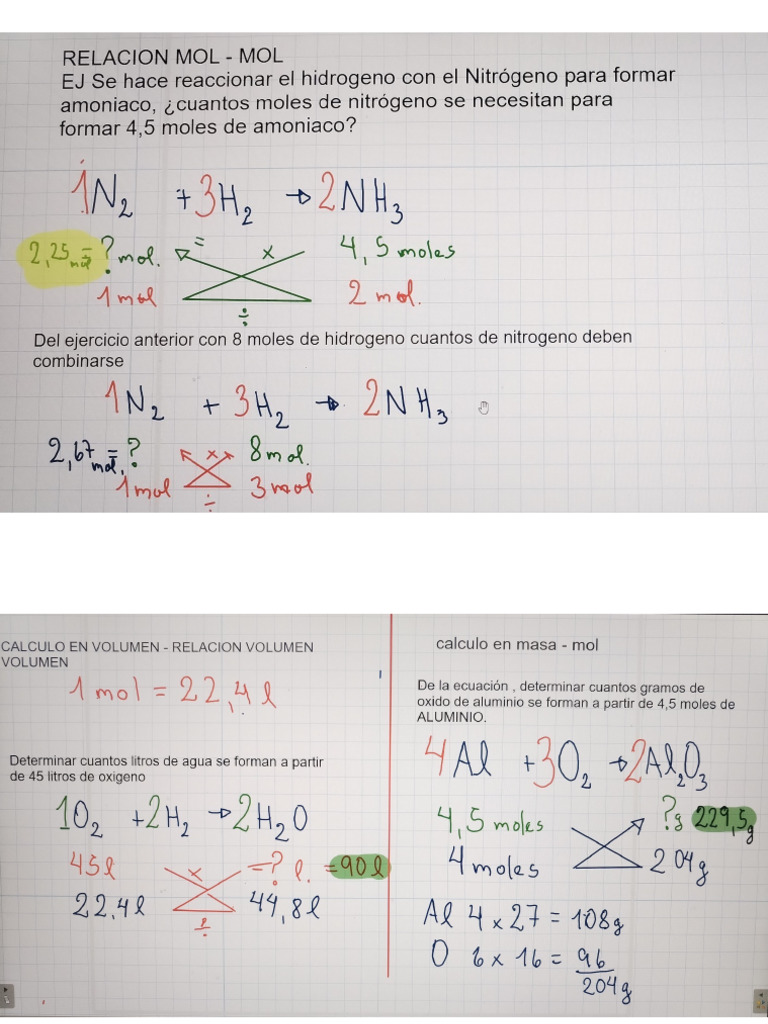 RELACION MOL - MOL
EJ Se hace reaccionar el hidrogeno con el Nitrógeno para formar
amoniaco, ¿cuantos moles de nitrógeno se necesitan para
formar 4,5 moles de amoniaco?
1N₂ + 3H₂ → 2NH₃
2,25 mol = ? mol. = x 4,5 moles
1 mol ÷ 2 mol.
Del ejercicio anterior con 8 moles de hidrogeno cuantos de nitrogeno deben
combinarse
1N₂ + 3H₂ → 2NH₃
2,67 mol. = ? x 8 mol.
1 mol ÷ 3 mol
CALCULO EN VOLUMEN - RELACION VOLUMEN
VOLUMEN
1 mol = 22,4 l
Determinar cuantos litros de agua se forman a partir
de 45 litros de oxigeno
1O₂ + 2H₂ → 2H₂O
45l x = ? l. = 90 l
22,4l ÷ 44,8l
calculo en masa - mol
De la ecuación , determinar cuantos gramos de
oxido de aluminio se forman a partir de 4,5 moles de
ALUMINIO.
4Al + 3O₂ → 2Al₂O₃
4,5 moles ? g 229,5 g
4 moles 204g
Al 4 x 27 = 108g
O 6 x 16 = 96
204g